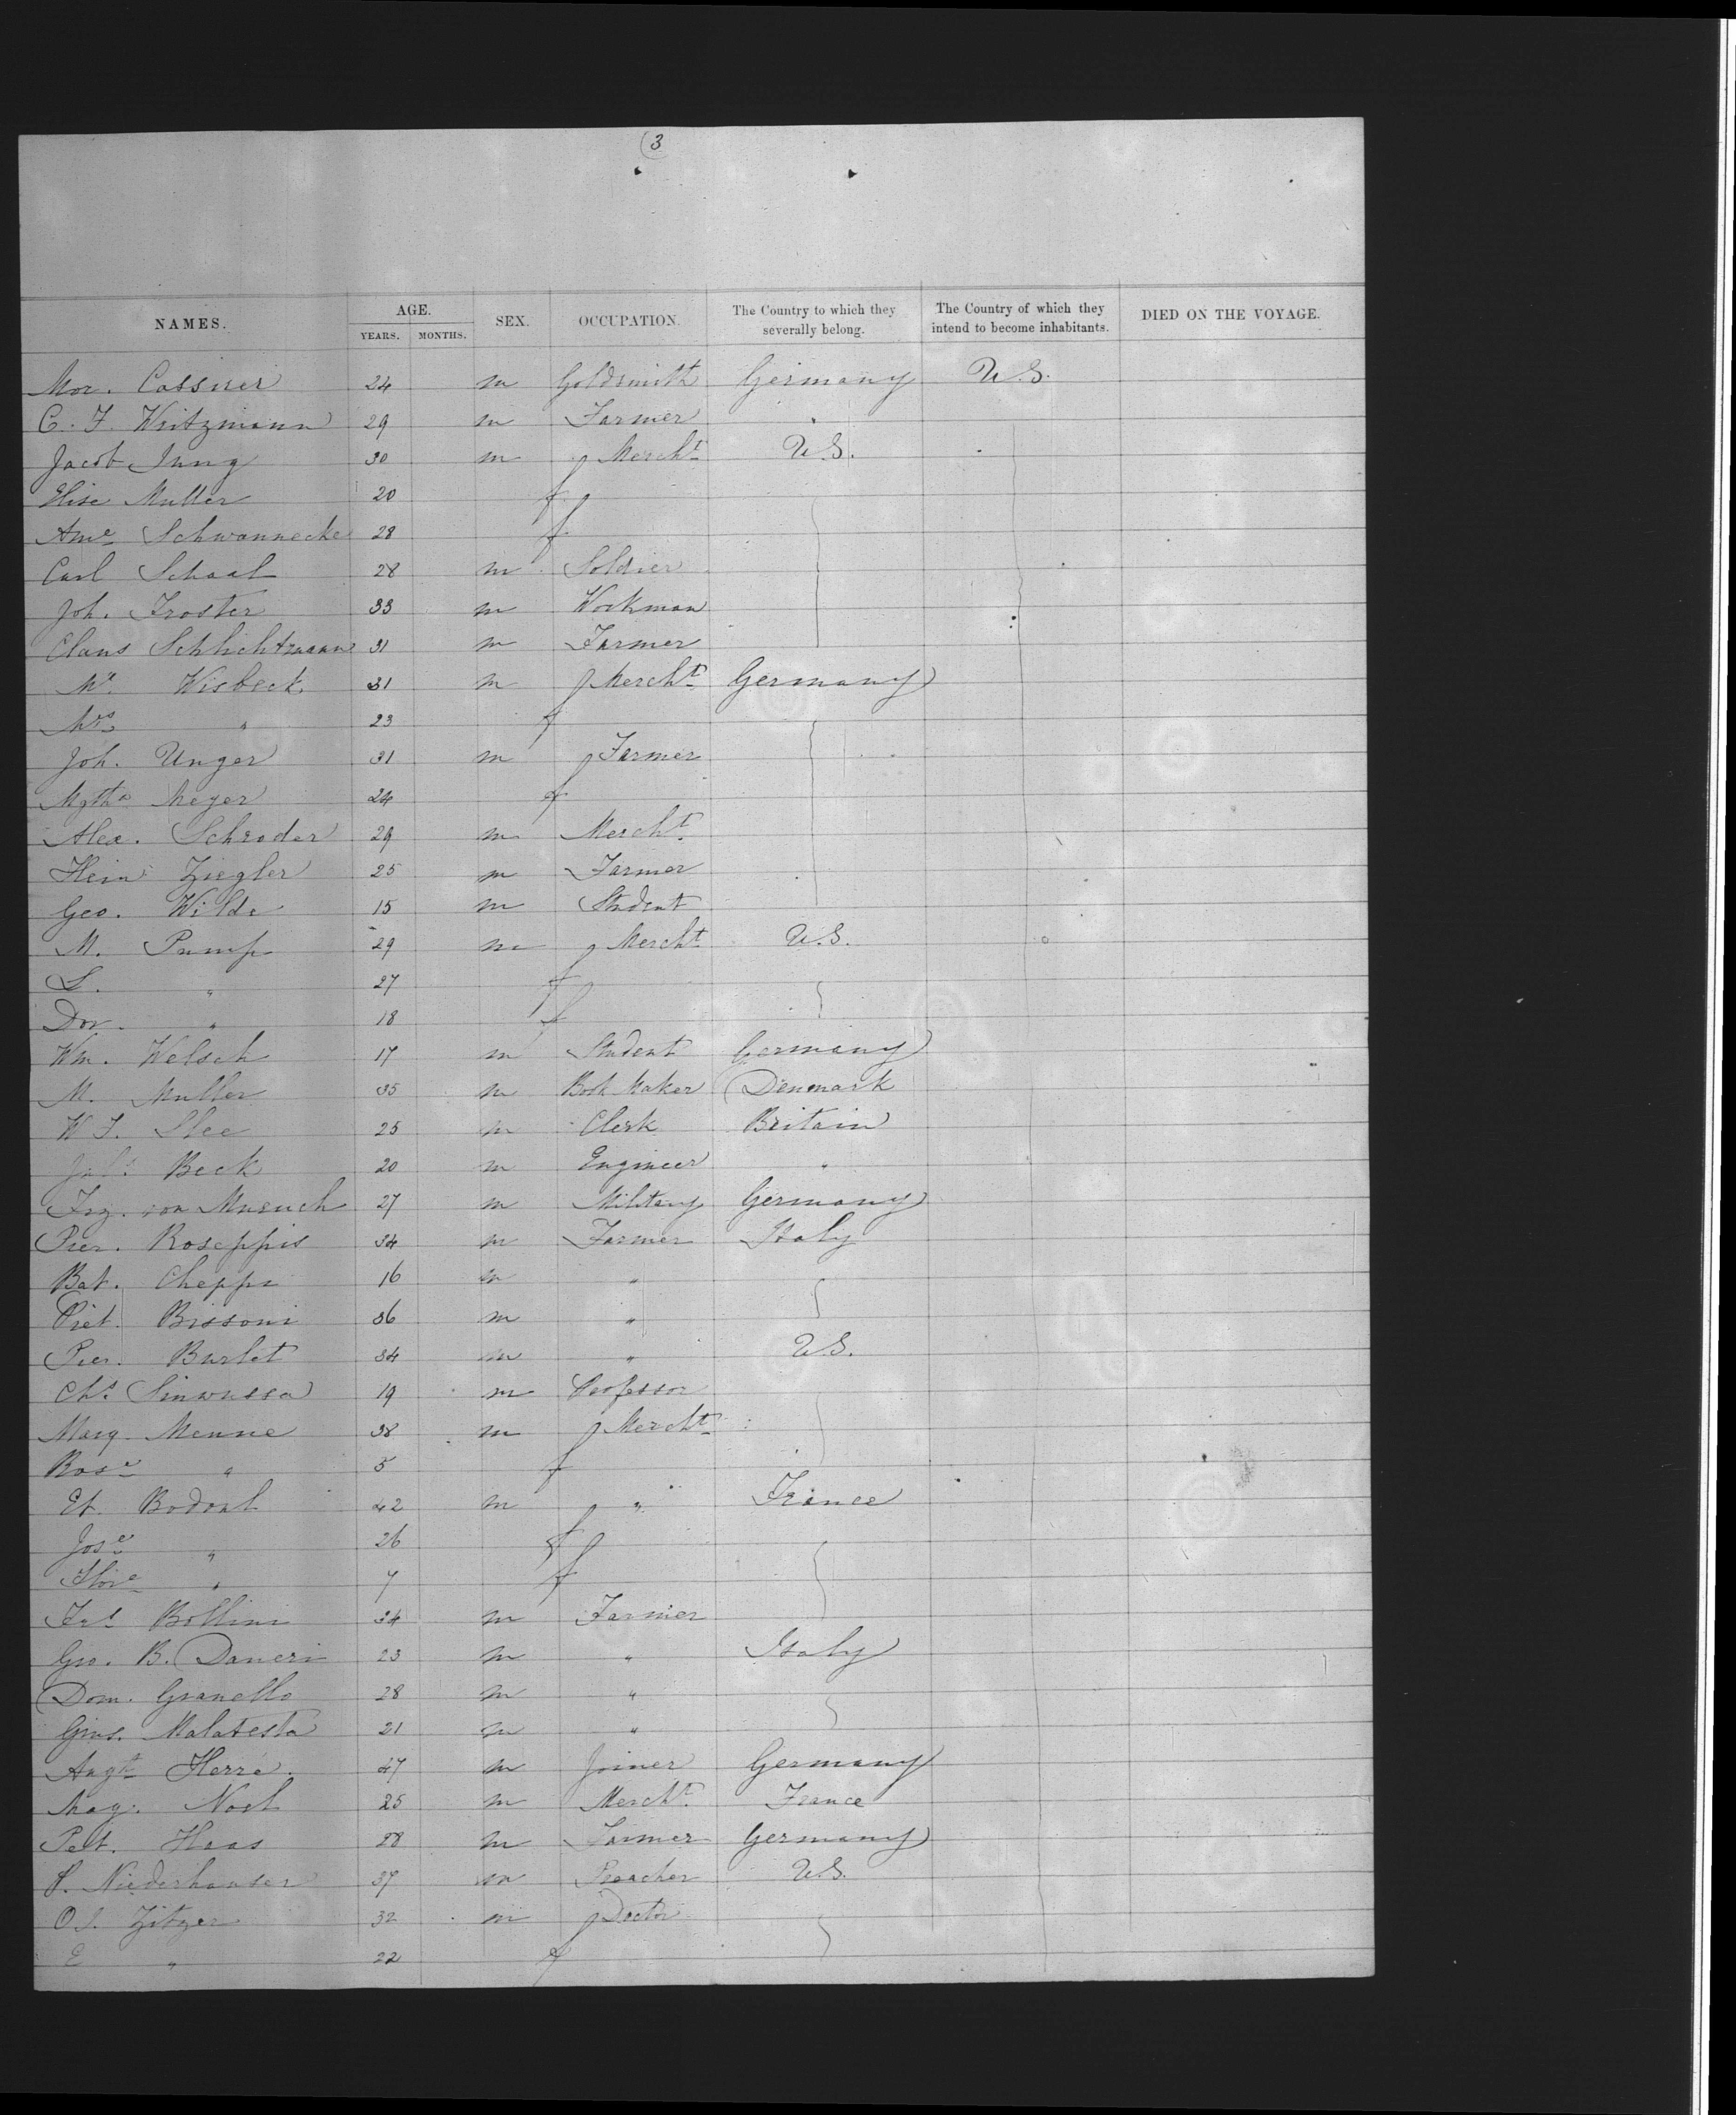 3
NAMES. AGE. YEARS. MONTHS. SEX. OCCUPATION. The Country to which they severally belong. The Country of which they intend to become inhabitants. DIED ON THE VOYAGE.
Mor. Cassner 24 m Goldsmith Germany U.S.
C. F. Witzmann 29 m Farmer "
Jacob Jung 30 m Mercht U.S.
Elise Muller 20 f
Ame Schwannecke 28 f
Carl Schaal 28 m Soldier
Joh. Froster 33 m Workman
Claus Schlichtmann 31 m Farmer
Mr. Wisbeck 31 m Mercht Germany
Mrs " 23 f
Joh. Unger 31 m Farmer
Mgtha Meyer 24 f
Alex. Schroder 29 m Mercht
Hein Ziegler 25 m Farmer
Geo. Wilde 15 m Student
M. Pump 29 m Mercht U.S.
L. " 27 f
Dor. " 18 f
Wm. Welsch 17 m Student Germany
M. Muller 35 m Book Maker Denmark
W F. Slee 25 m Clerk Britain
Beck 20 m Engineer "
Frz. von 27 m Military Germany
Pier. Roseppis 34 m Farmer Italy
Bat. Cheppi 16 m "
Piet. Bissoni 36 m "
Pier. Burlet 34 m " U.S.
Chs 19 m Professor
Marg. Menne 38 m Mercht
Rose " 5 f
Et. Bodoal 42 m " France
Jose " 26 f
Flore " 7 f
Bollini 34 m Farmer
Gio. B. Daneri 23 m " Italy
Dom. Granello 28 m "
Gius. Malatesta 21 m "
Augt Herré 47 m Joiner Germany
Mag. Noel 25 m Mercht France
Pet. Haas 28 m Farmer Germany
P. Niederhauser 37 m Preacher U.S.
O. J. Zitzer 32 m Doctor
E " 22 f